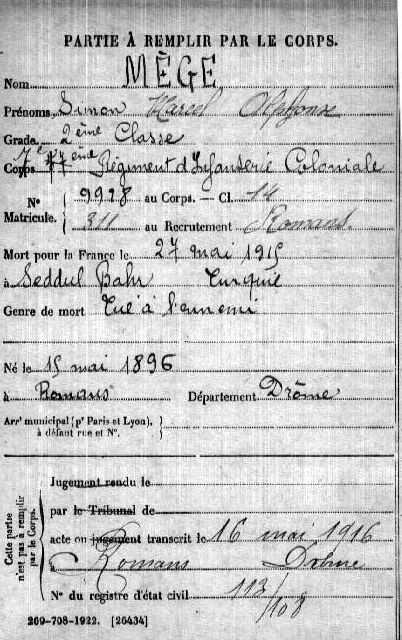 PARTIE À REMPLIR PAR LE CORPS.
Nom MÈGE
Prénoms Simon Marcel Alphonse
Grade 2ème Classe
Corps 7e Régiment d'Infanterie Coloniale
N° Matricule. { 9928 au Corps. — Cl. 14
311 au Recrutement Romans.
Mort pour la France le 27 mai 1915
à Seddul Bahr Turquie
Genre de mort Tué à l'ennemi
Né le 15 mai 1896
à Romans Département Drôme
Arrt municipal (pr Paris et Lyon), à défaut rue et N°.
Cette partie n'est pas à remplir par le Corps.
Jugement rendu le
par le Tribunal de
acte ou jugement transcrit le 16 mai 1916
à Romans Drôme
N° du registre d'état civil 112/108
269-708-1922. [26434]